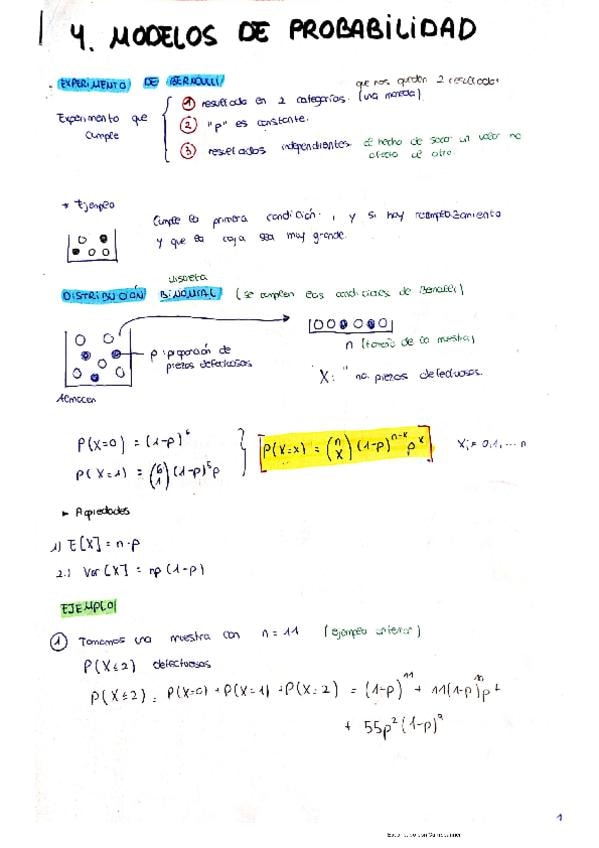 4. MODELOS DE PROBABILIDAD
EXPERIMENTO DE BERNOULLI
que nos queden 2 resultados
Experimento que cumple
1 resultado en 2 categorías. (una moneda)
2 "p" es constante.
3 resultados independientes el hecho de sacar un valor no
afecta al otro
* Ejemplo
Cumple la primera condición., y si hay reemplazamiento
y que la caja sea muy grande.
discreta
DISTRIBUCIÓN BINOMIAL (se cumplen las condiciones de Bernoulli)
p: proporción de
piezas defectuosas
n (tamaño de la muestra)
X: "no. piezas defectuosas.
Almacen
P(X=0) = (1-p)^6
P(X=1) = (6 1) (1-p)^5 p
P(X=x) = (n x) (1-p)^{n-x} p^x
Xi = 0,1, ... n
► Propiedades
1) E[X] = n·p
2.) Var[X] = np(1-p)
EJEMPLO
1 Tomamos una muestra con n = 11 (ejemplo anterior)
P(X≤2) defectuosos
P(X≤2) = P(X=0) + P(X=1) + P(X=2) = (1-p)^11 + 11(1-p)^10 p +
+ 55p^2 (1-p)^9
1